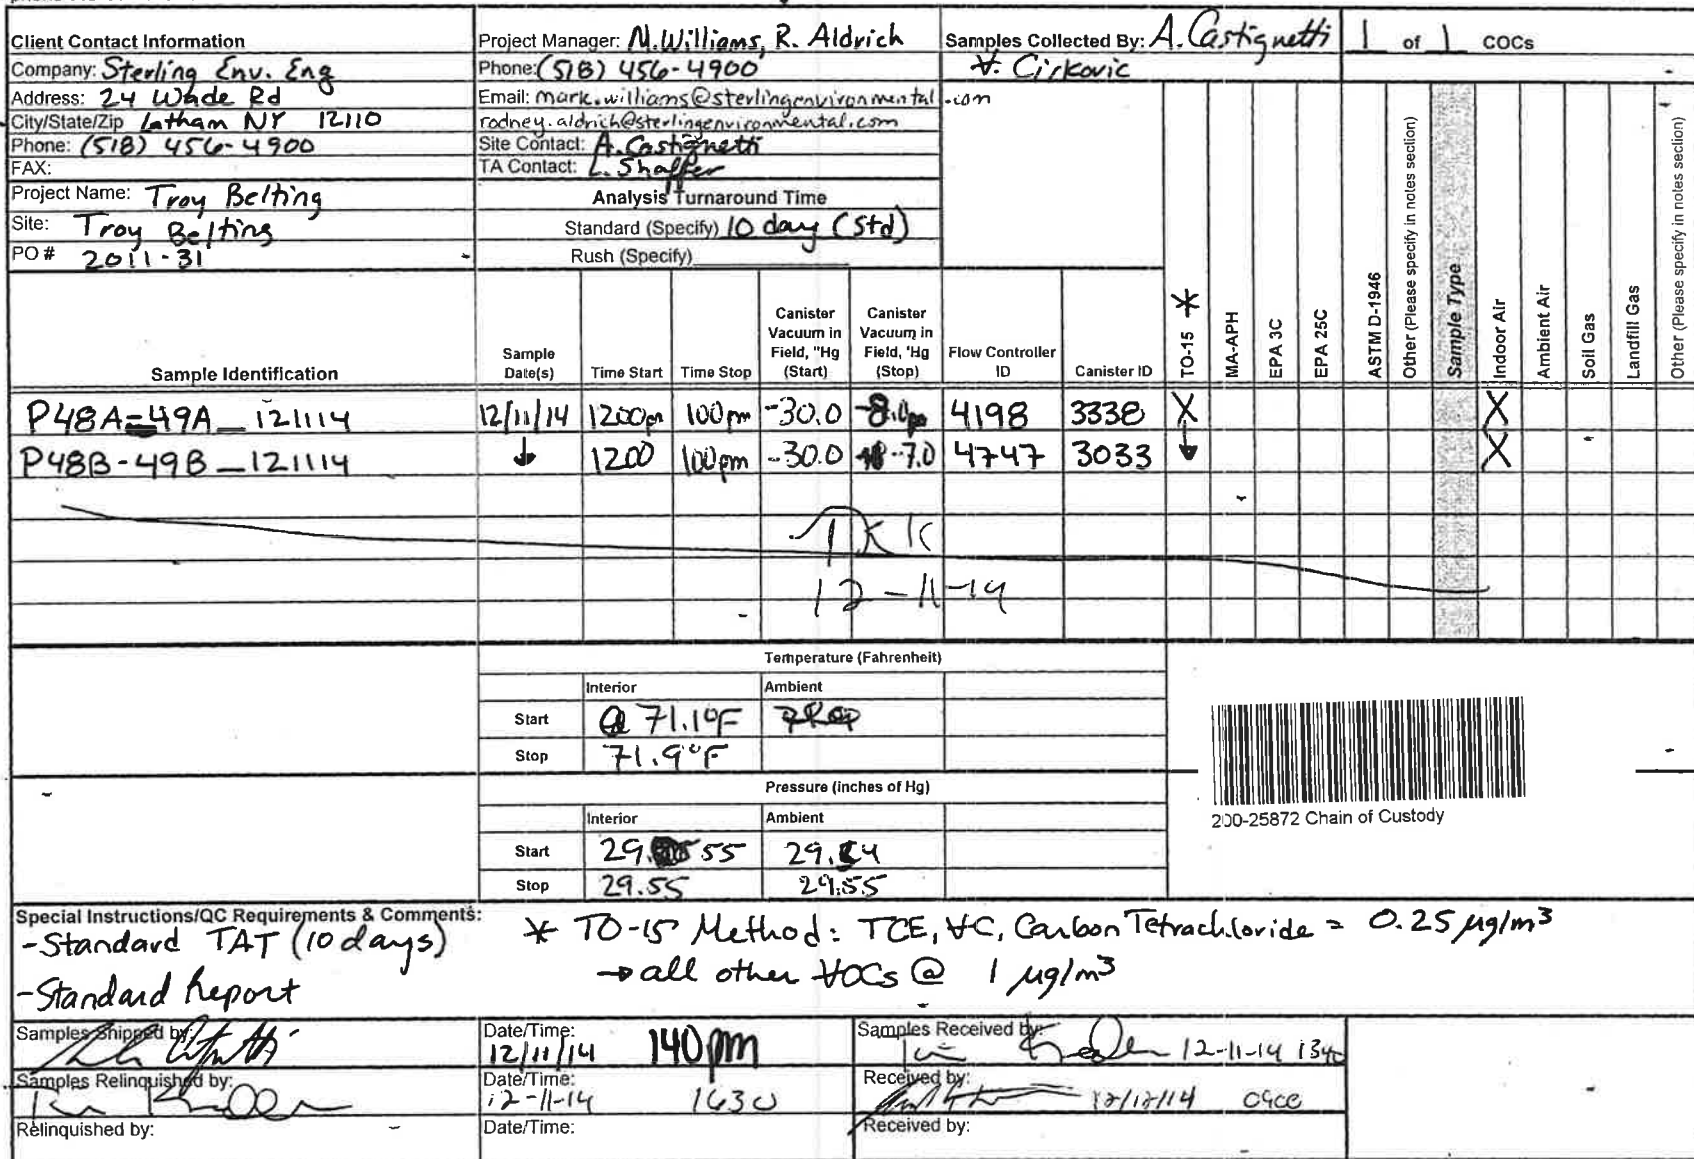 Client Contact Information
Company: Sterling Env. Eng
Address: 24 Wade Rd
City/State/Zip Latham NY 12110
Phone: (518) 456-4900
FAX:
Project Name: Troy Belting
Site: Troy Belting
PO # 2011-31
Project Manager: M. Williams, R. Aldrich
Phone: (518) 456-4900
Email: mark.williams@sterlingenvironmental.com
rodney.aldrich@sterlingenvironmental.com
Site Contact: A. Castignetti
TA Contact: L. Shaffer
Analysis Turnaround Time
Standard (Specify) 10 day (Std)
Rush (Specify)
Samples Collected By: A. Castignetti
V. Cirkovic
1 of 1 COCs
Sample Identification
Sample Date(s)
Time Start
Time Stop
Canister Vacuum in Field, "Hg (Start)
Canister Vacuum in Field, 'Hg (Stop)
Flow Controller ID
Canister ID
TO-15 *
MA-APH
EPA 3C
EPA 25C
ASTM D-1946
Other (Please specify in notes section)
Sample Type
Indoor Air
Ambient Air
Soil Gas
Landfill Gas
Other (Please specify in notes section)
P48A-49A_121114 12/11/14 1200pm 100pm -30.0 -8.0 4198 3338 X X
P48B-49B_121114 ↓ 1200 100pm -30.0 -7.0 4747 3033 ↓ X
TKK
12-11-14
Temperature (Fahrenheit)
Interior Ambient
Start 71.1°F
Stop 71.9°F
Pressure (inches of Hg)
Interior Ambient
Start 29.55 29.54
Stop 29.55 29.55
200-25872 Chain of Custody
Special Instructions/QC Requirements & Comments:
-Standard TAT (10 days)
-Standard Report
* TO-15 Method: TCE, VC, Carbon Tetrachloride = 0.25 µg/m³
→ all other VOCs @ 1 µg/m³
Samples Shipped by:
Date/Time: 12/11/14 140pm
Samples Received by: 12-11-14 1340
Samples Relinquished by:
Date/Time: 12-11-14 1630
Received by: 12/12/14 0900
Relinquished by:
Date/Time:
Received by: